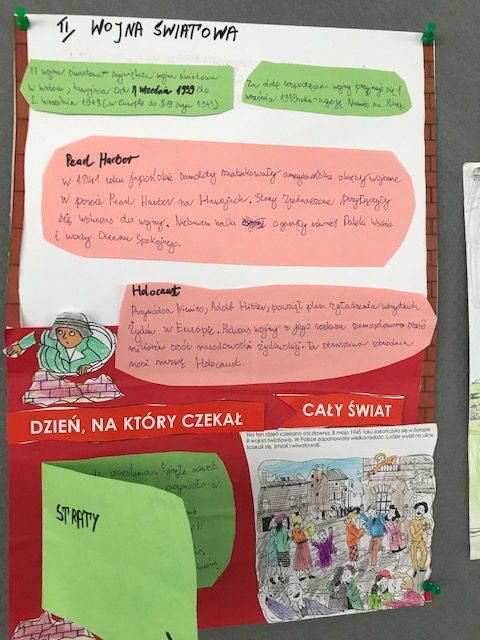 II WOJNA ŚWIATOWA
II wojna światowa - największa wojna światowa
w historii, trwająca od 1 września 1939 do
2 września 1945 (w Europie do 8/9 maja 1945)
Za datę rozpoczęcia wojny przyjmuje się 1
września 1939 roku - agresję Niemiec na Polskę.
Pearl Harbor
W 1941 roku japońskie samoloty zaatakowały amerykańskie okręty wojenne
w porcie Pearl Harbor na Hawajach. Stany Zjednoczone przyłączyły
się wówczas do wojny. Niebawem walki ogarnęły również Daleki Wschód
i wody Oceanu Spokojnego.
Holocaust
Przywódca Niemiec, Adolf Hitler, powziął plan zgładzenia wszystkich
Żydów w Europie. Podczas wojny z jego rozkazu zamordowano sześć
milionów osób narodowości żydowskiej. Ta straszliwa zbrodnia
nosi nazwę Holocaust.
DZIEŃ, NA KTÓRY CZEKAŁ CAŁY ŚWIAT
Na ten dzień czekano od dawna. 8 maja 1945 roku zakończyła się w Europie
II wojna światowa. W Polsce zapanowała wielka radość. Ludzie wyszli na ulice,
ściskali się, śmiali i wiwatowali.
STRATY